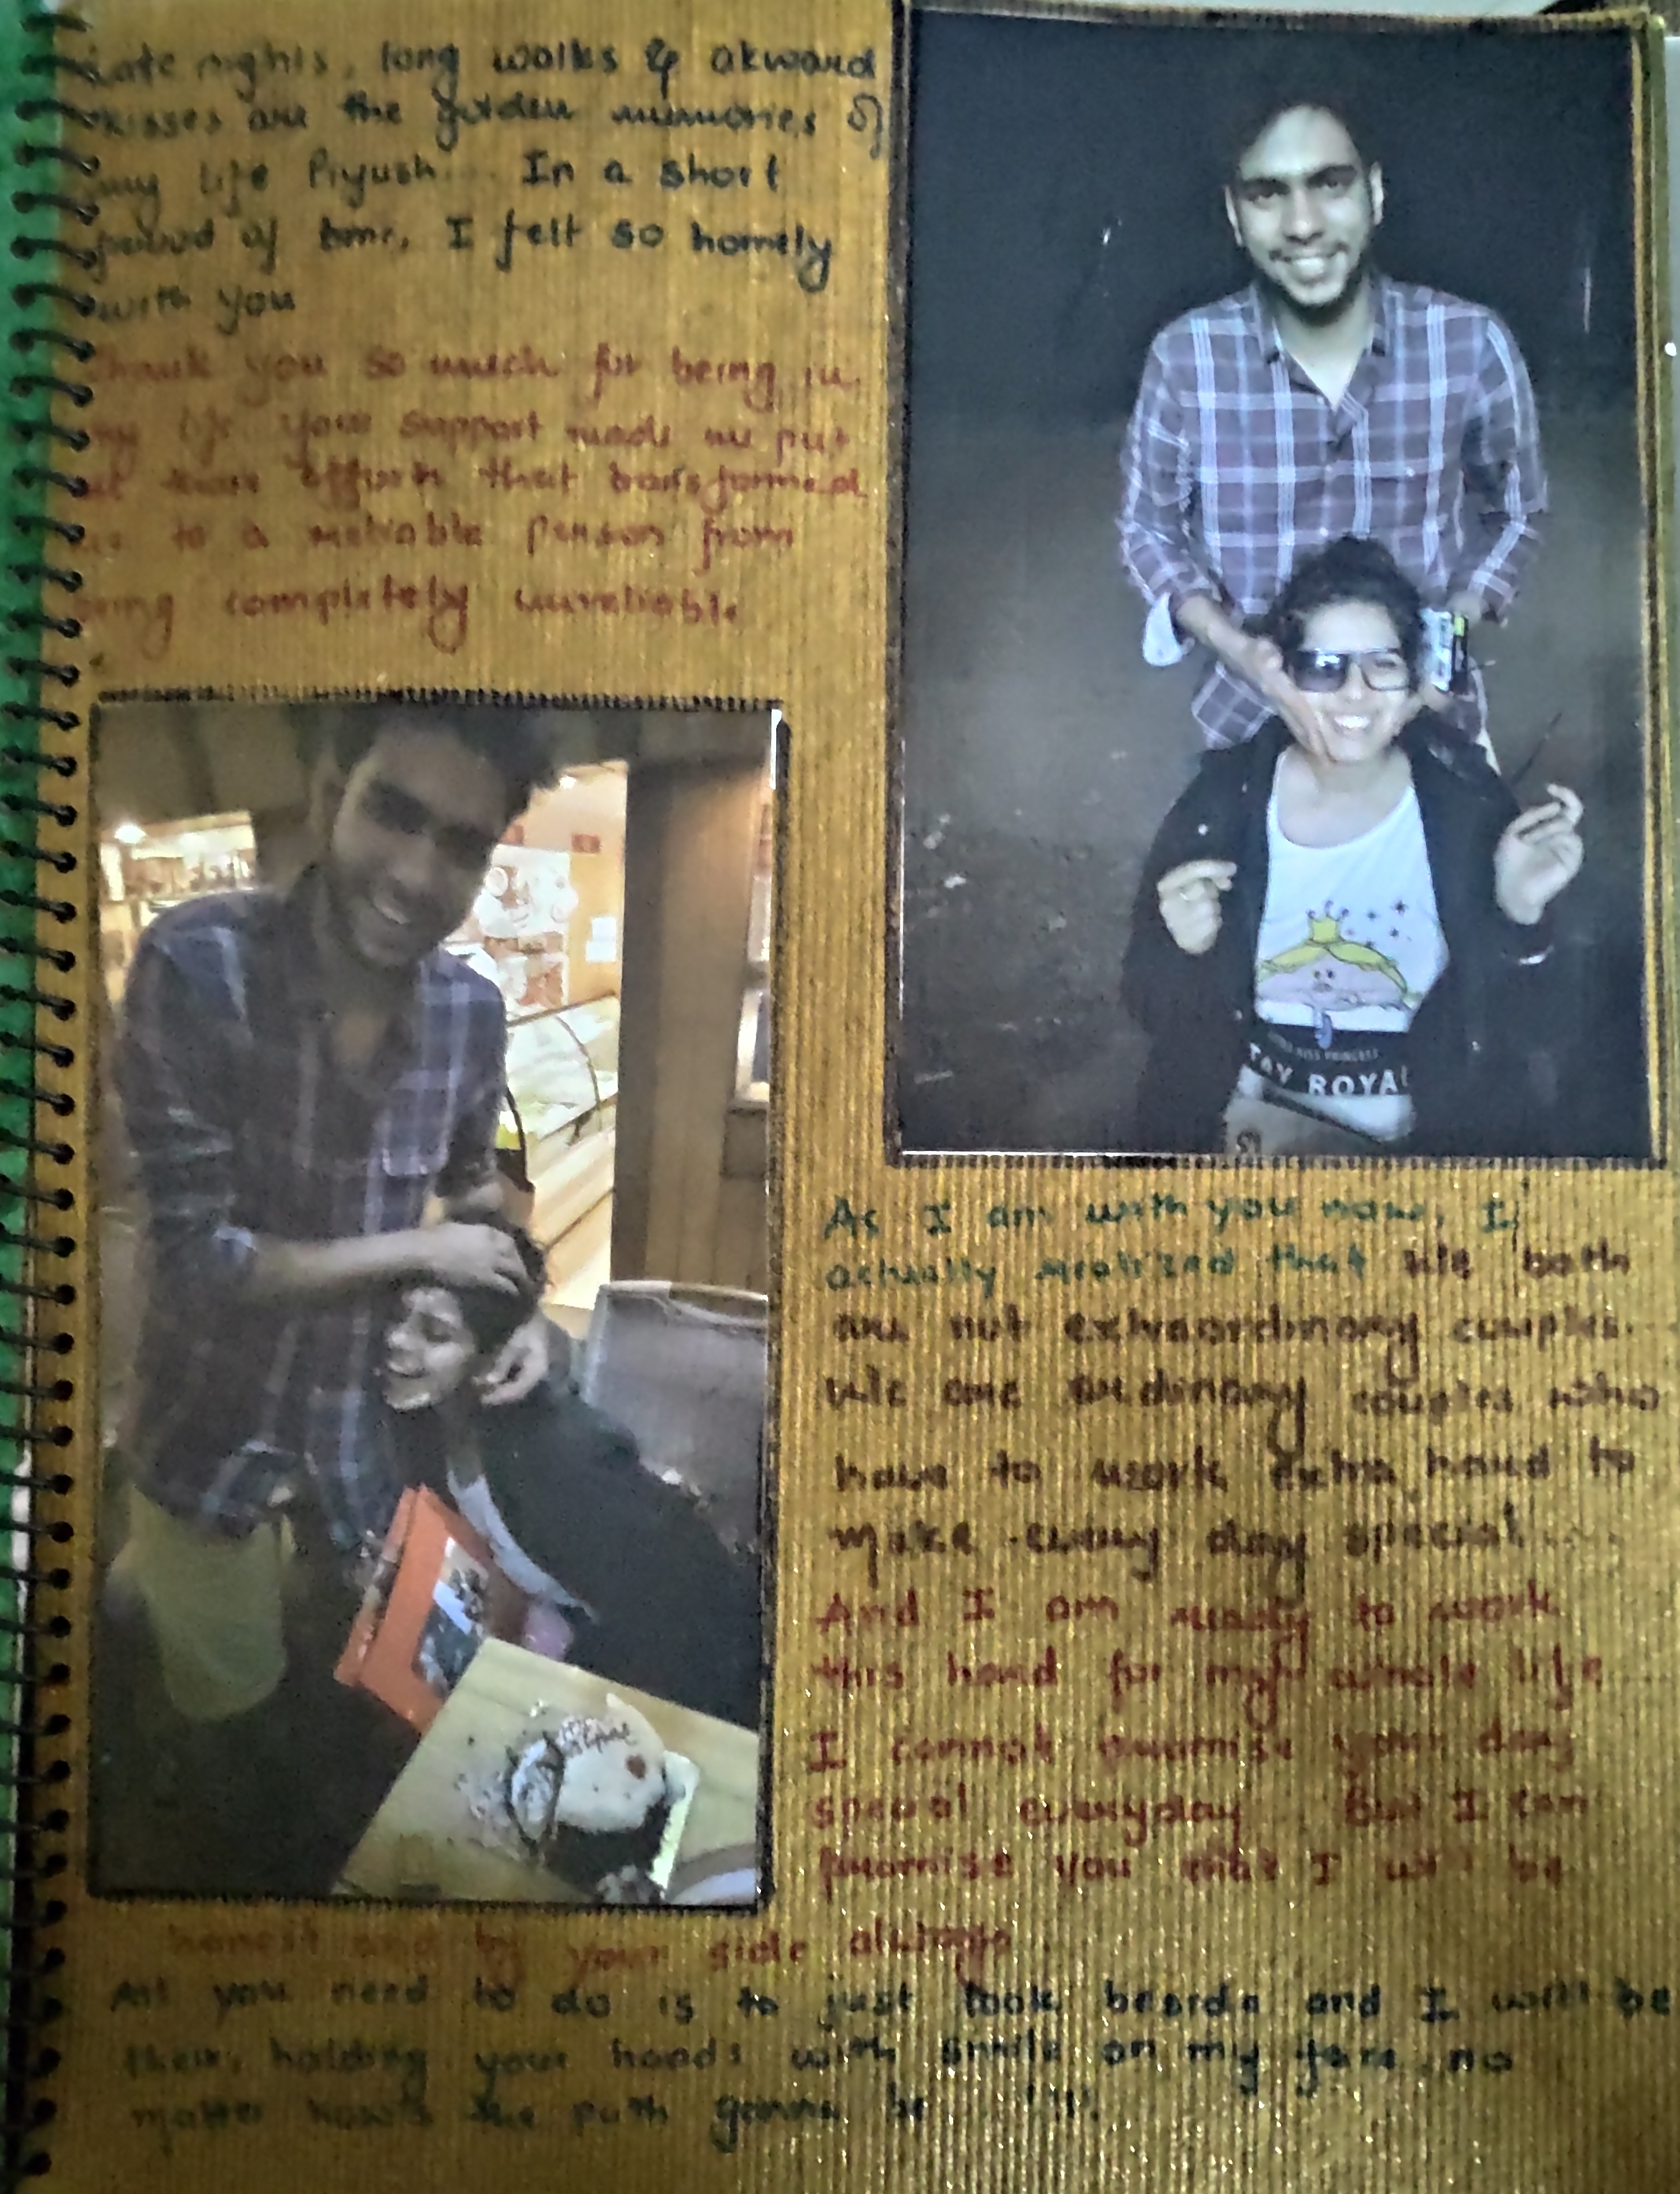 Late nights, long walks & akward
kisses are the golden memories of
my life Piyush... In a short
period of time, I felt so homely
with you
Thank you so much for being in
my life your support made me put
efforts that transformed
to a reliable person from
being completely unreliable.
TAY ROYAL
As I am with you now, I
actually realized that we both
are not extraordinary couples.
We are ordinary couples who
have to work extra hard to
make every day special....
And I am ready to work
this hard for my whole life
I cannot promise your day
special everyday. But I can
promise you that I will be
honest and by your side always
All you need to do is to just look beside and I will be
their, holding your hands with smile on my face, no
matter how's the path gonna be